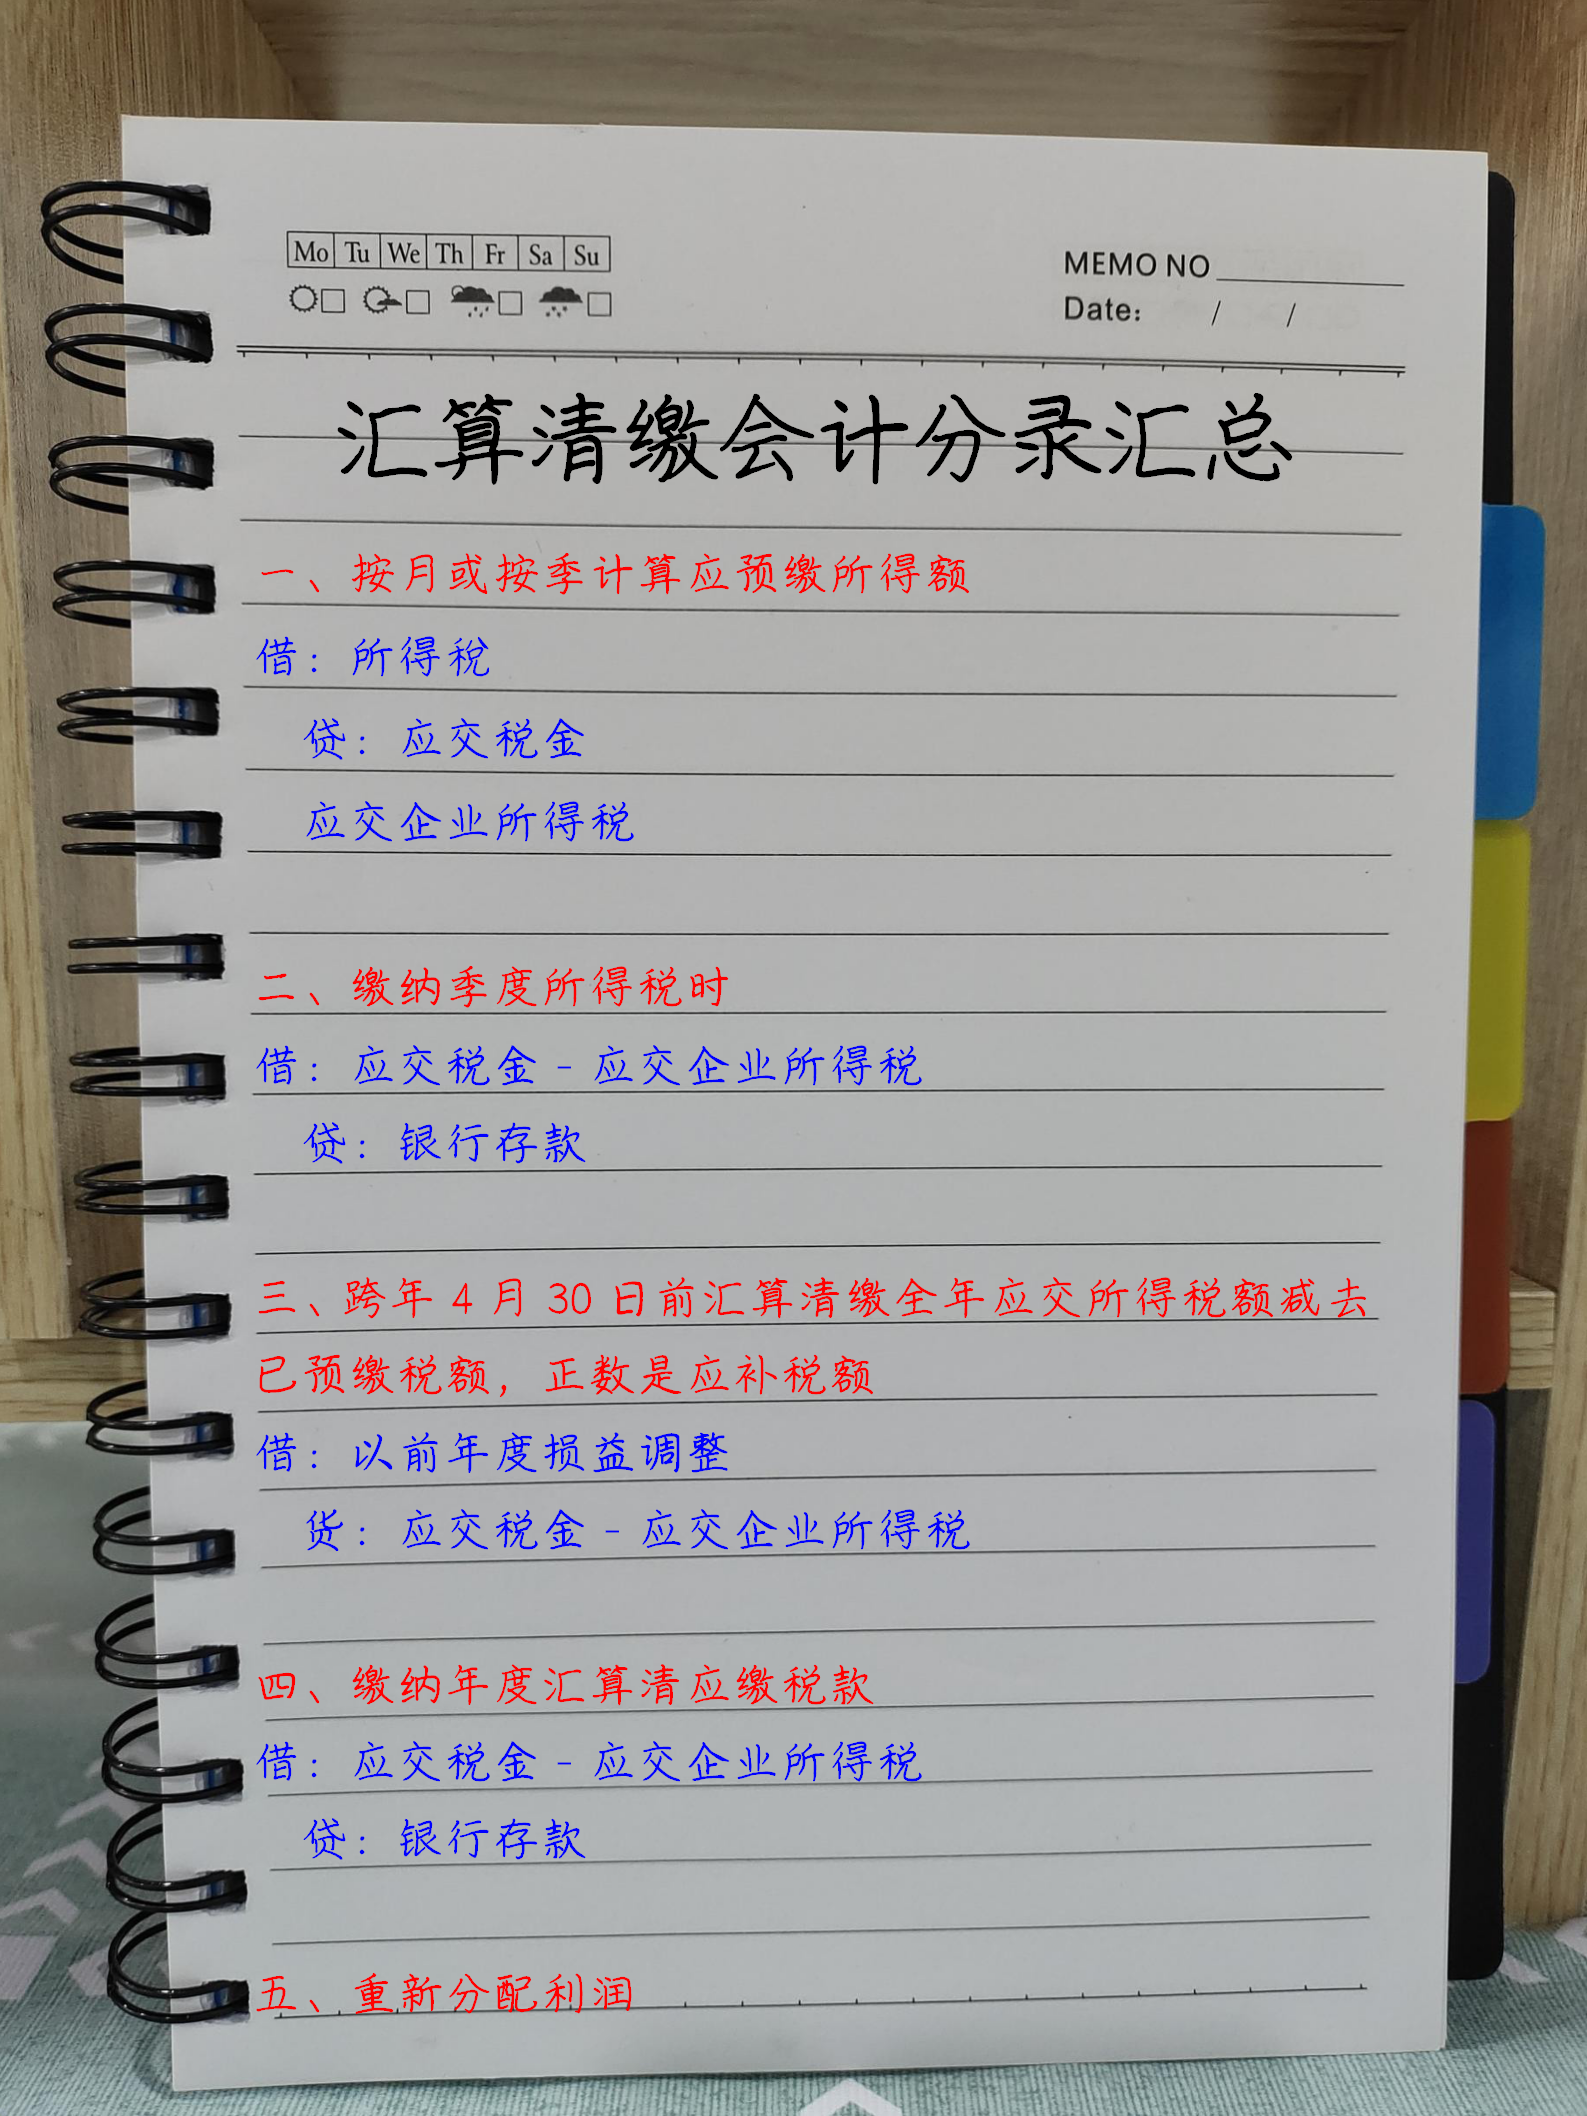 Mo Tu We Th Fr Sa Su
MEMO NO
Date: / /
汇算清缴会计分录汇总
一、按月或按季计算应预缴所得额
借：所得税
贷：应交税金
应交企业所得税
二、缴纳季度所得税时
借：应交税金-应交企业所得税
贷：银行存款
三、跨年4月30日前汇算清缴全年应交所得税额减去
已预缴税额，正数是应补税额
借：以前年度损益调整
货：应交税金-应交企业所得税
四、缴纳年度汇算清应缴税款
借：应交税金-应交企业所得税
贷：银行存款
五、重新分配利润